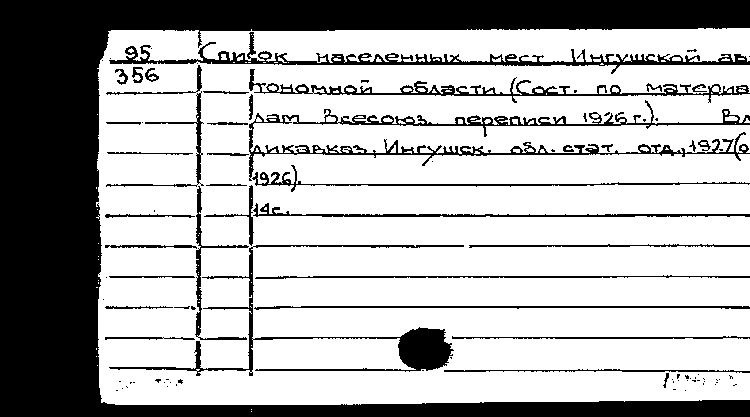 95 Список населенных мест Ингушской ав
356
тономной области. (Сост. по материа
лам Всесоюз. переписи 1926 г.). Вла
дикавказ, Ингушск. обл. стат. отд., 1927(о
1926).
14с.